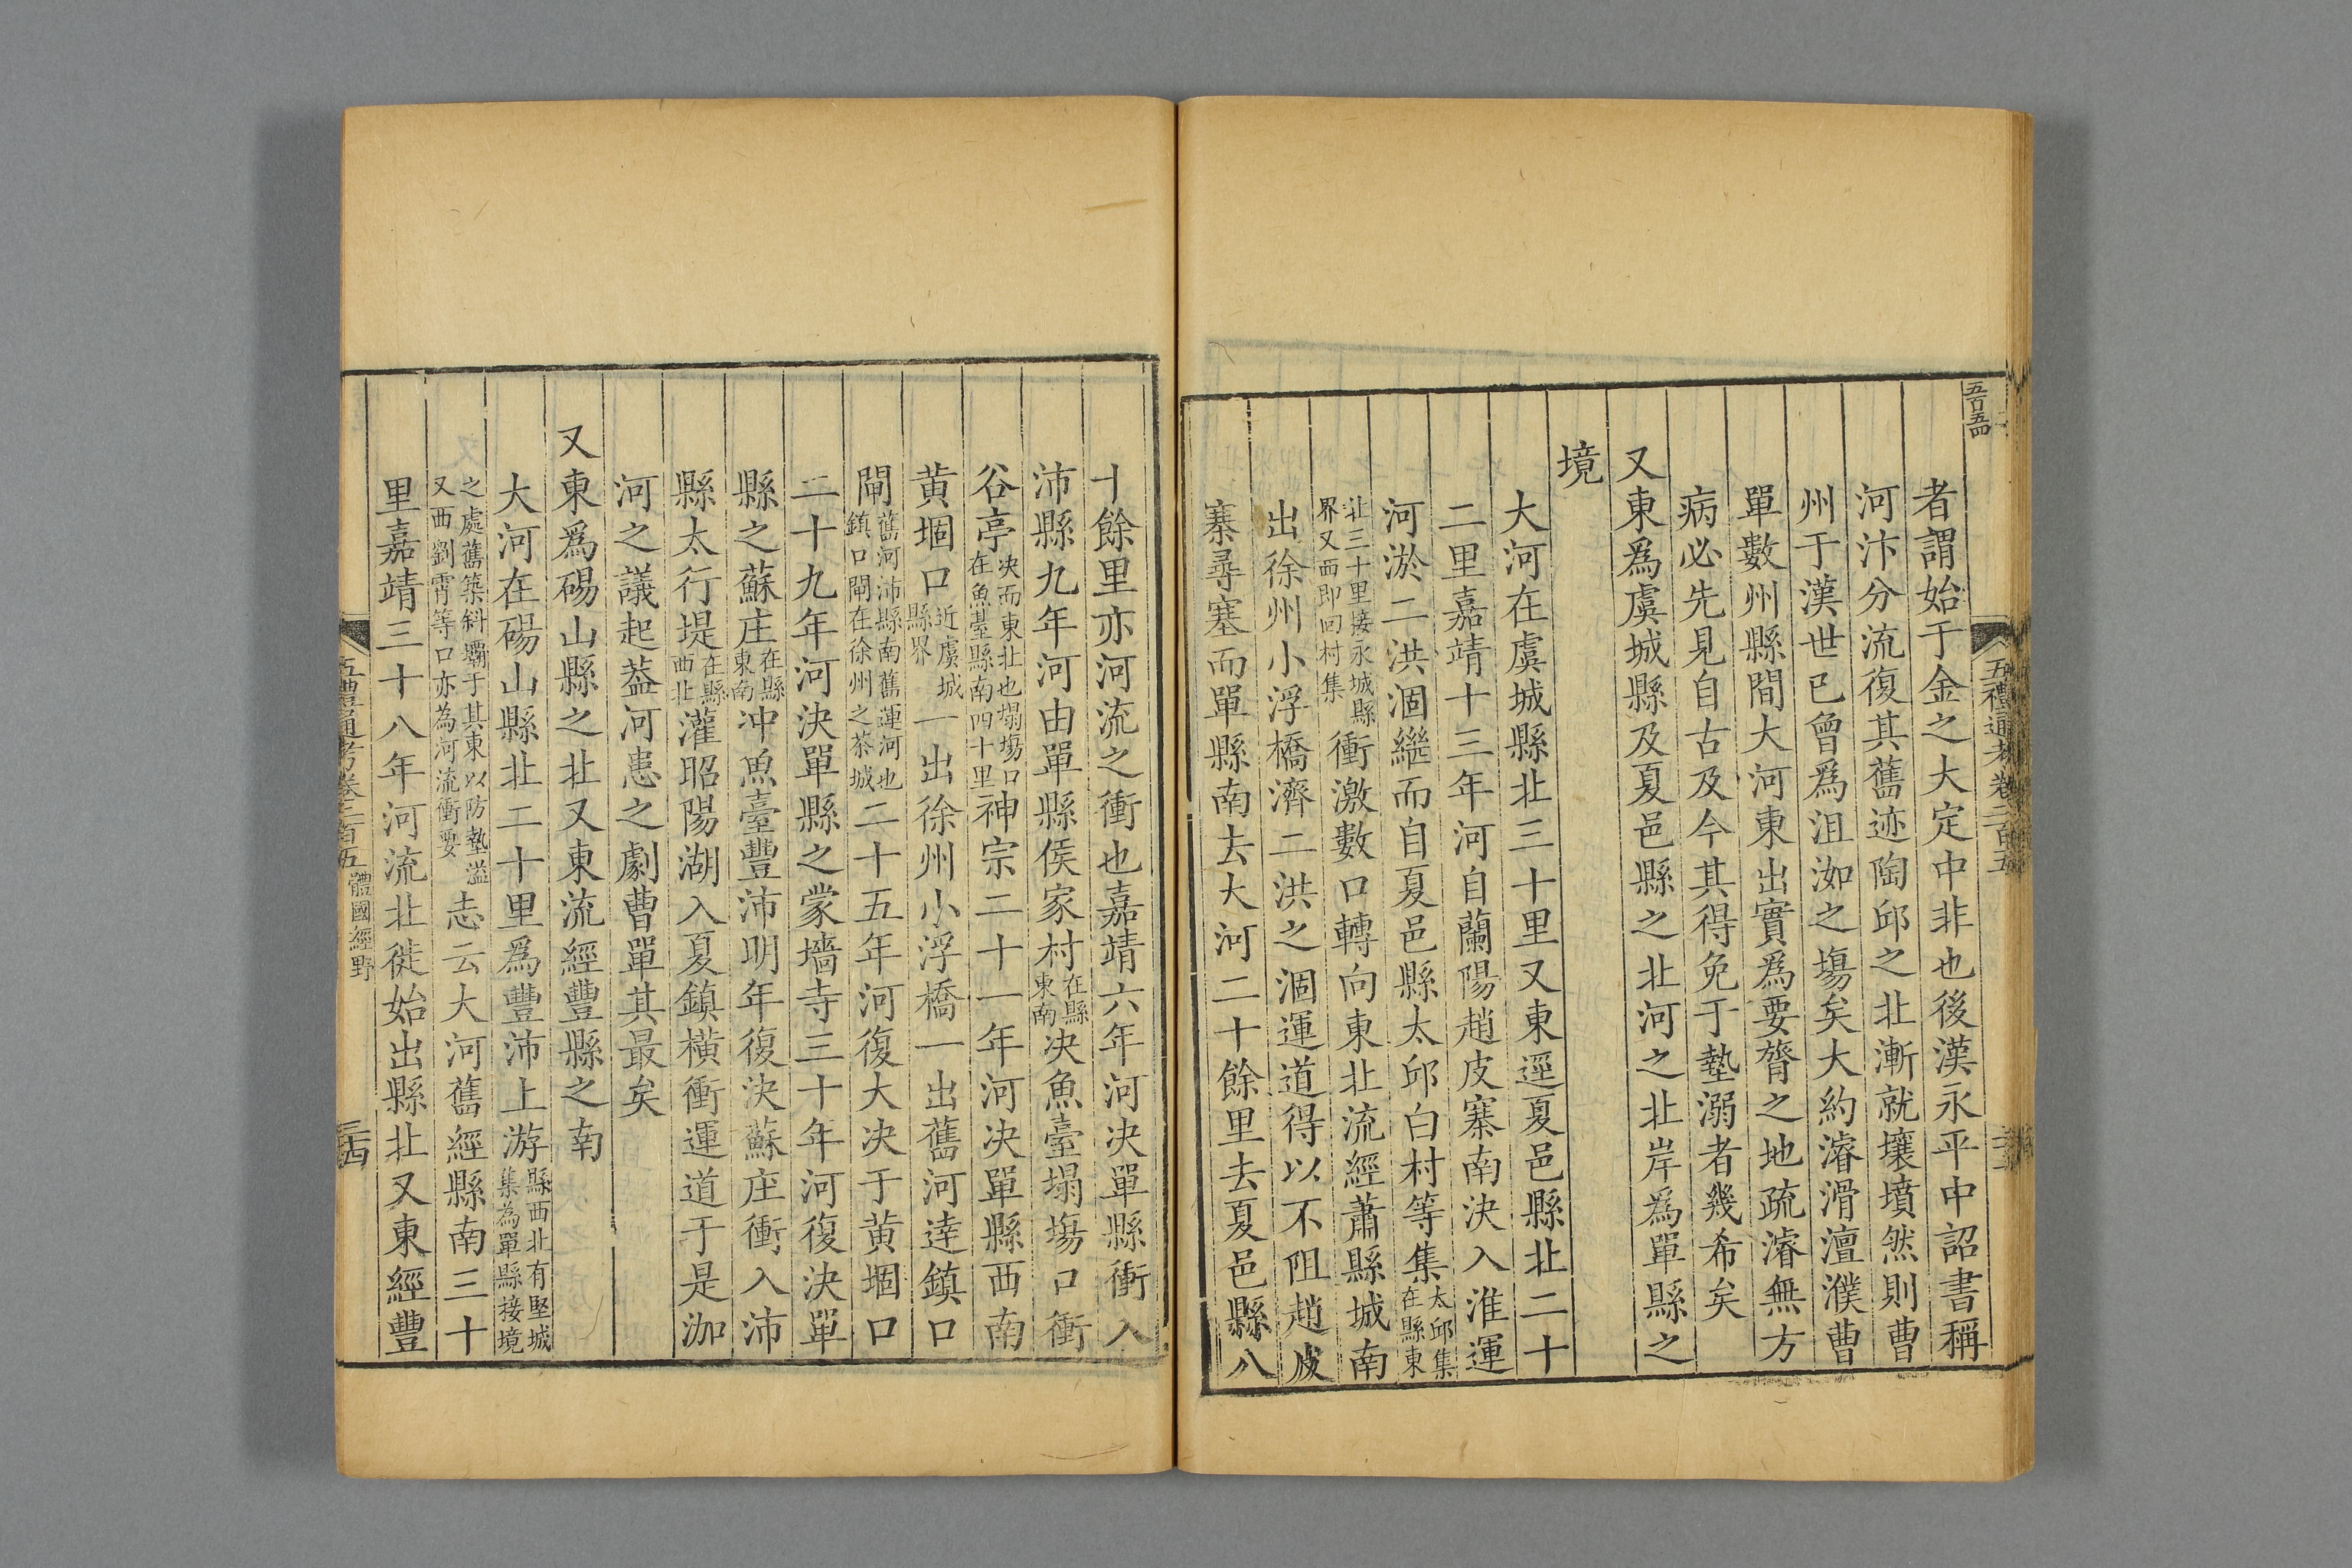 五百五四
五禮通考卷二百五
者謂始于金之大定中非也後漢永平中詔書稱
河汴分流復其舊迹陶邱之北漸就壤墳然則曹
州于漢世已曾爲沮洳之塲矣大約濬滑澶濮曹
單數州縣間大河東出實爲要膂之地疏濬無方
病必先見自古及今其得免于墊溺者幾希矣
又東爲虞城縣及夏邑縣之北河之北岸爲單縣之
境
大河在虞城縣北三十里又東逕夏邑縣北二十
二里嘉靖十三年河自蘭陽趙皮寨南決入淮運
河淤二洪涸繼而自夏邑縣太邱白村等集太邱集在縣東
北三十里接永城縣界又西即囘村集衝激數口轉向東北流經蕭縣城南
出徐州小浮橋濟二洪之涸運道得以不阻趙皮
寨尋塞而單縣南去大河二十餘里去夏邑縣八
十餘里亦河流之衝也嘉靖六年河決單縣衝入
沛縣九年河由單縣侯家村在縣東南决魚臺塌塲口衝
谷亭决而東北也塌塲口在魚臺縣南四十里神宗二十一年河决單縣西南
黄堌口近虞城縣界一出徐州小浮橋一出舊河逹鎮口
閘舊河沛縣南舊運河也鎮口閘在徐州之茶城二十五年河復大决于黄堌口
二十九年河決單縣之蒙墻寺三十年河復決單
縣之蘇庄在縣東南冲魚臺豐沛明年復決蘇庄衝入沛
縣太行堤在縣西北灌昭陽湖入夏鎮横衝運道于是泇
河之議起葢河患之劇曹單其最矣
又東爲碭山縣之北又東流經豐縣之南
大河在碭山縣北二十里爲豐沛上游縣西北有堅城集為單縣接境
之處舊築斜壩于其東以防墊溢又西劉霄等口亦為河流衝要志云大河舊經縣南三十
里嘉靖三十八年河流北徙始出縣北又東經豐
五禮通考卷二百五 體國經野
三四